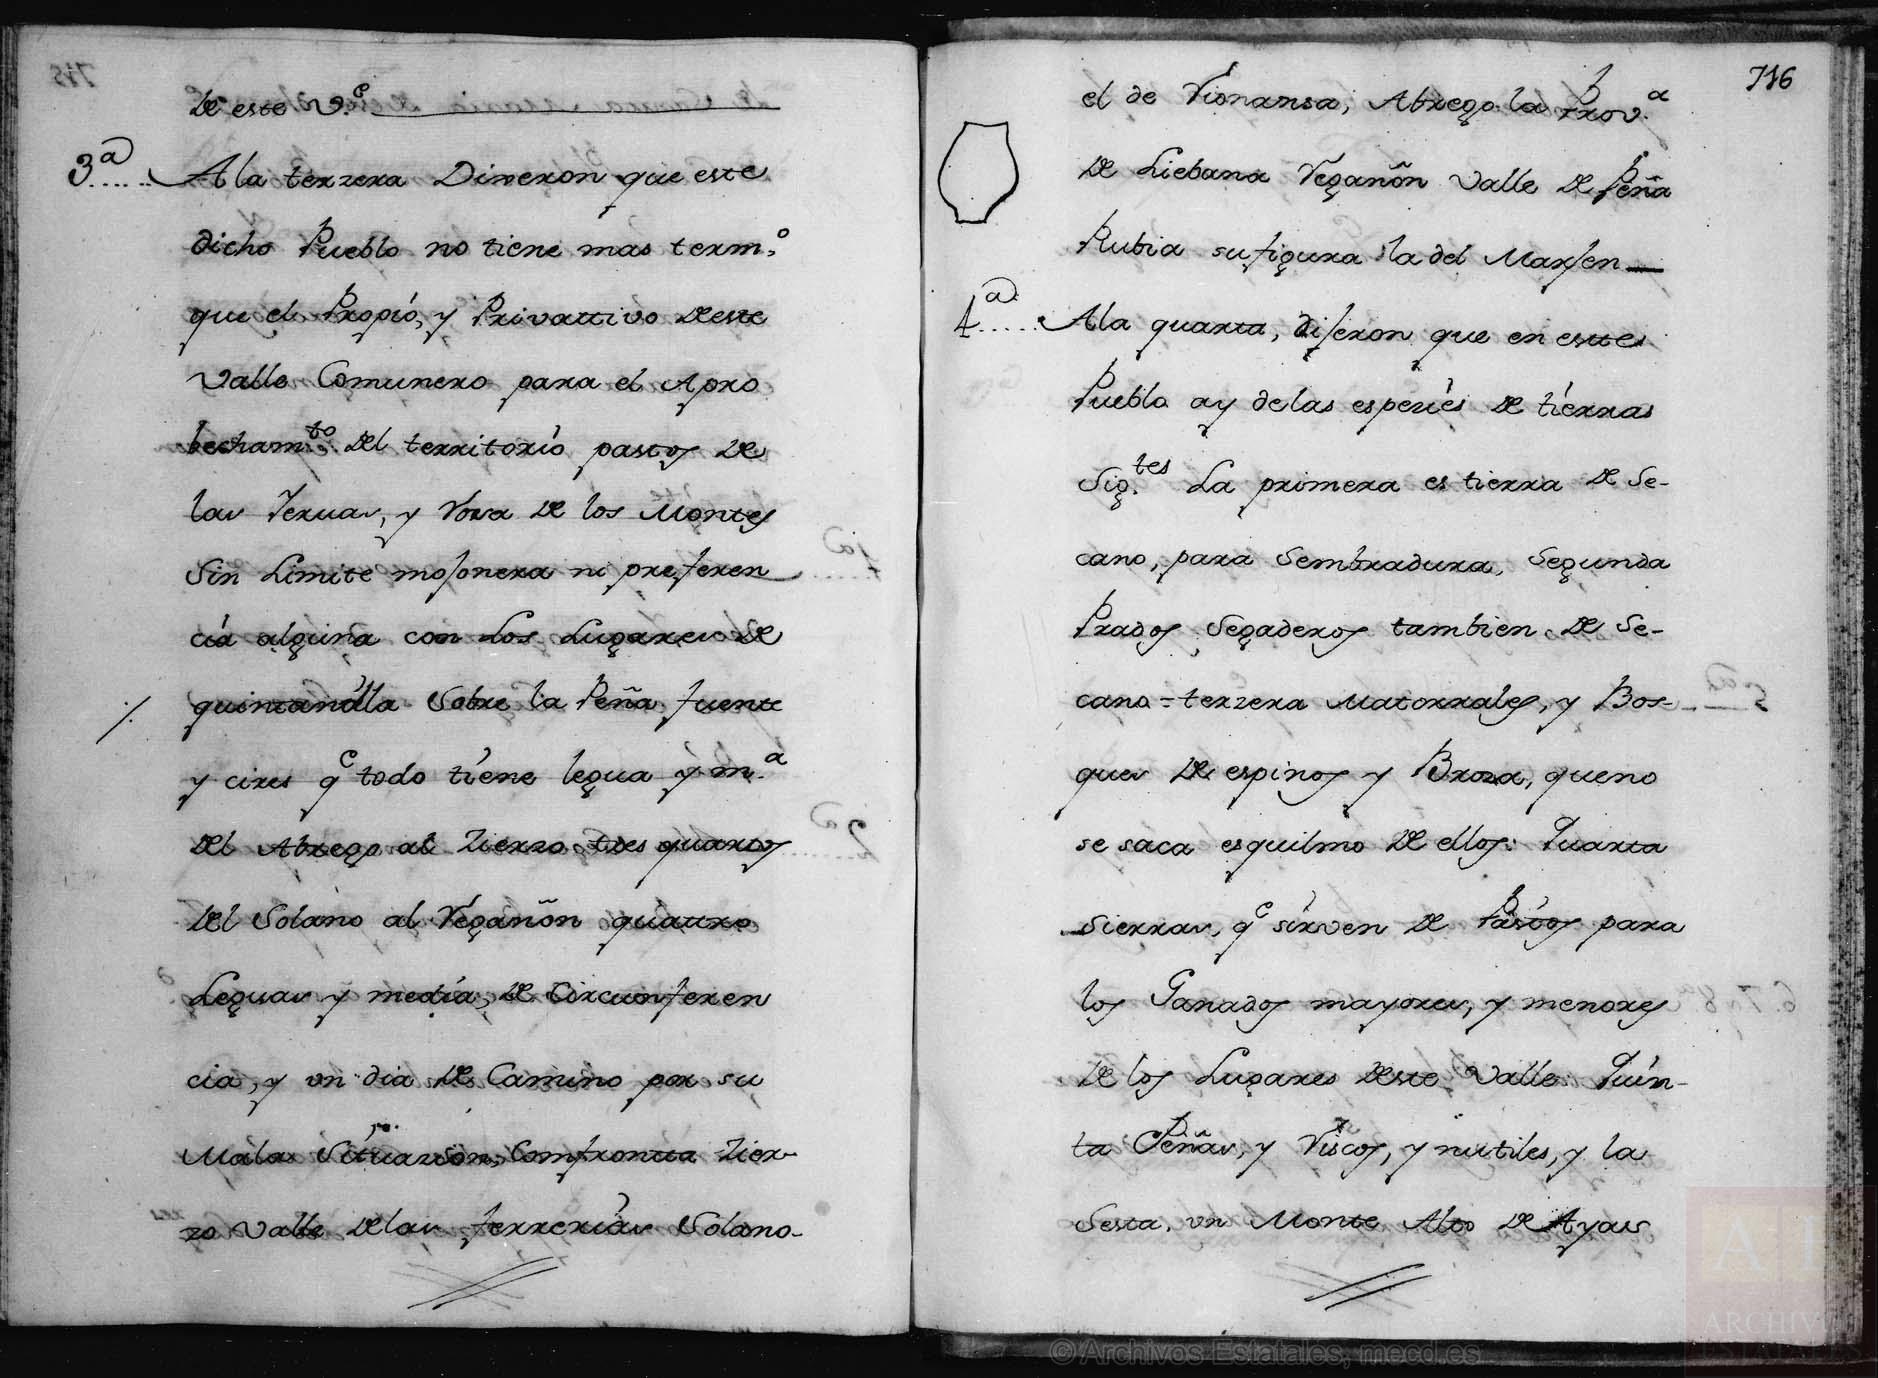 de este V.e
3.a Ala terzera Dixeron que este
dicho Pueblo no tiene mas term.o
que el Propio, y Privattivo deste
Valle Comunero para el Apro
becham.to del territorio pastos de
las Yervas, y Roza de los Montes
Sin Limite mojonera ni preferen
cia alguna con Los Lugares de
quintanilla Sobre la Peña fuente
y cires q.e todo tiene legua y m.a
del Abrego al Zierzo tres quartos
del Solano al Regañon quattro
Leguas y media, de Circunferen
cia, y un dia de Camino por su
Mala Situazion, Confrontta Zier-
zo Valle delas ferrerias Solano-
716
el de Rionansa, Abrego la Prov.a
de Liebana Regañon Valle de Peña
Rubia su figura la del Marjen
4.a Ala quarta, dijeron que en estte
Pueblo ay delas espezies de tierras
Sig.tes La primera es tierra de Se-
cano, para Sembradura, Segunda
Prados Segaderos tambien de Se-
cano = terzera Matorrales, y Bos-
ques de espinos y Broza, que no
se saca esquilmo de ellos: Quarta
Sierras, q.e sirven de Pastos para
los Ganados mayores, y menores
de los Lugares deste Valle: Quin-
ta Peñas, y Riscos, ynutiles, y la
Sesta, un Monte Alto de Ayas
© Archivos Estatales, mecd.es
ARCHIVOS
ESTATALES